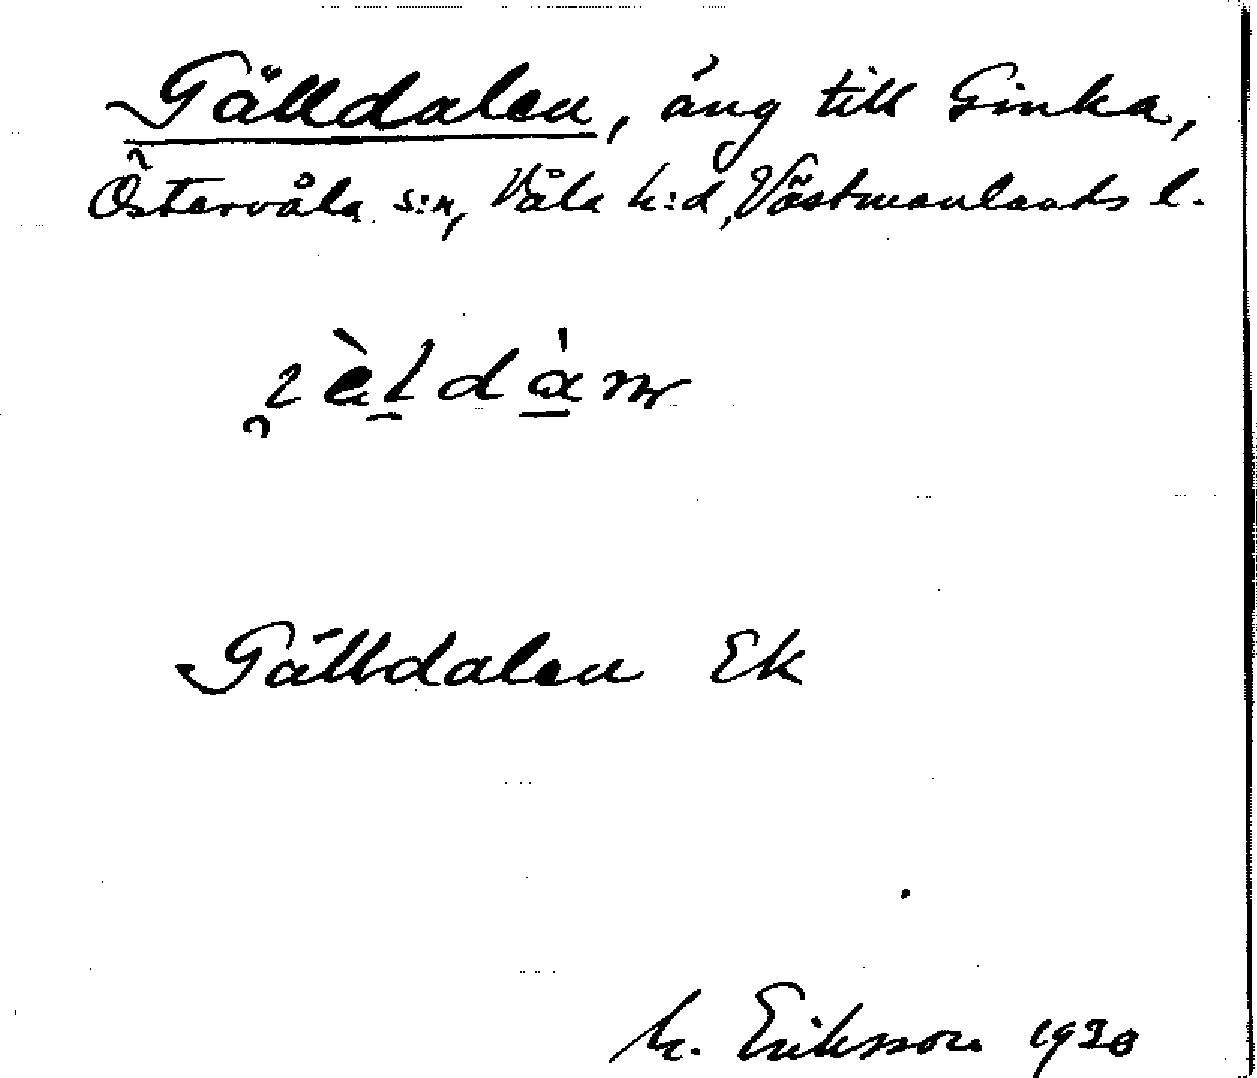 Gälldalen, äng till Ginka,
Östervåla s:n, Våla h:d, Västmanlands l.
Gälldalen Ek
M. Eriksson 1930